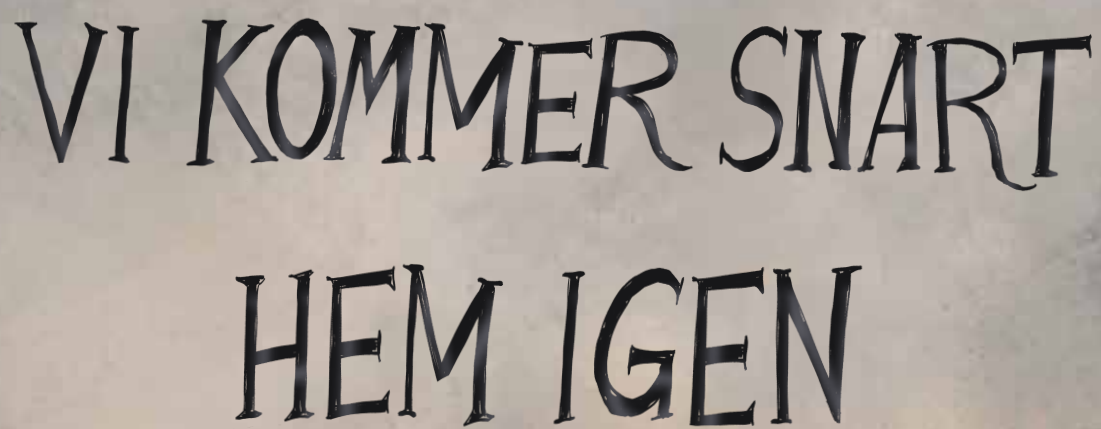 VI KOMMER SNART
HEM IGEN